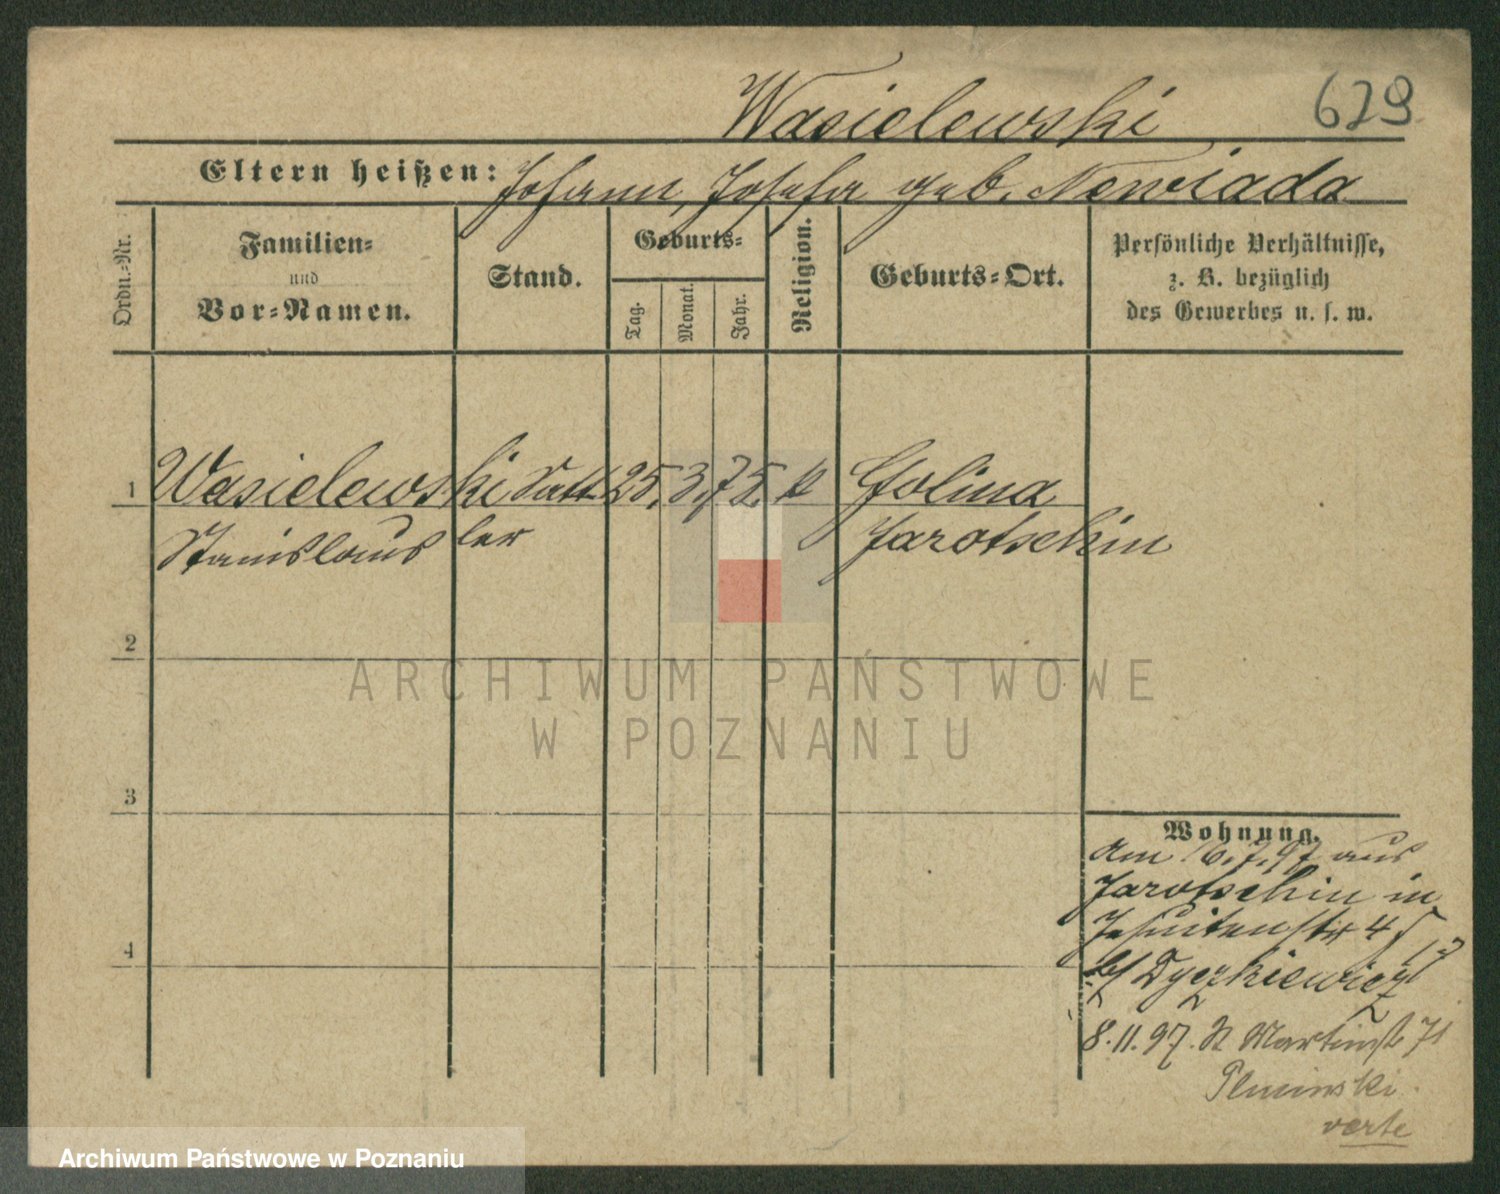 Wasielewski 629
Eltern heißen: Johann, Josefa geb. Nowiada
Ordn.-Nr.
Familien-
und
Vor-Namen.
Stand.
Geburts-
Tag.
Monat.
Jahr.
Religion.
Geburts-Ort.
Persönliche Verhältnisse,
z. B. bezüglich
des Gewerbes u. s. w.
1 Wasielewski Satt 25. 3. 75. k Golina
Stanislaus ler Jarotschin
2
3
4
Wohnung.
Am 16.7.97 aus
Jarotschin in
Jesuitenstr 4
b/ Dyczkiewicz
8.11.97. St Martinstr 71
Pluminski
verte
ARCHIWUM PAŃSTWOWE
W POZNANIU
Archiwum Państwowe w Poznaniu